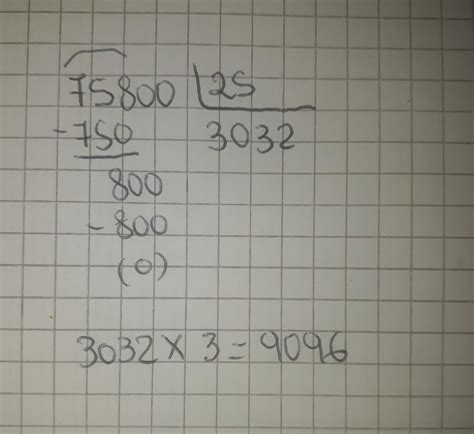 75800 25
-750 3032
800
-800
(0)
3032 × 3 = 9096